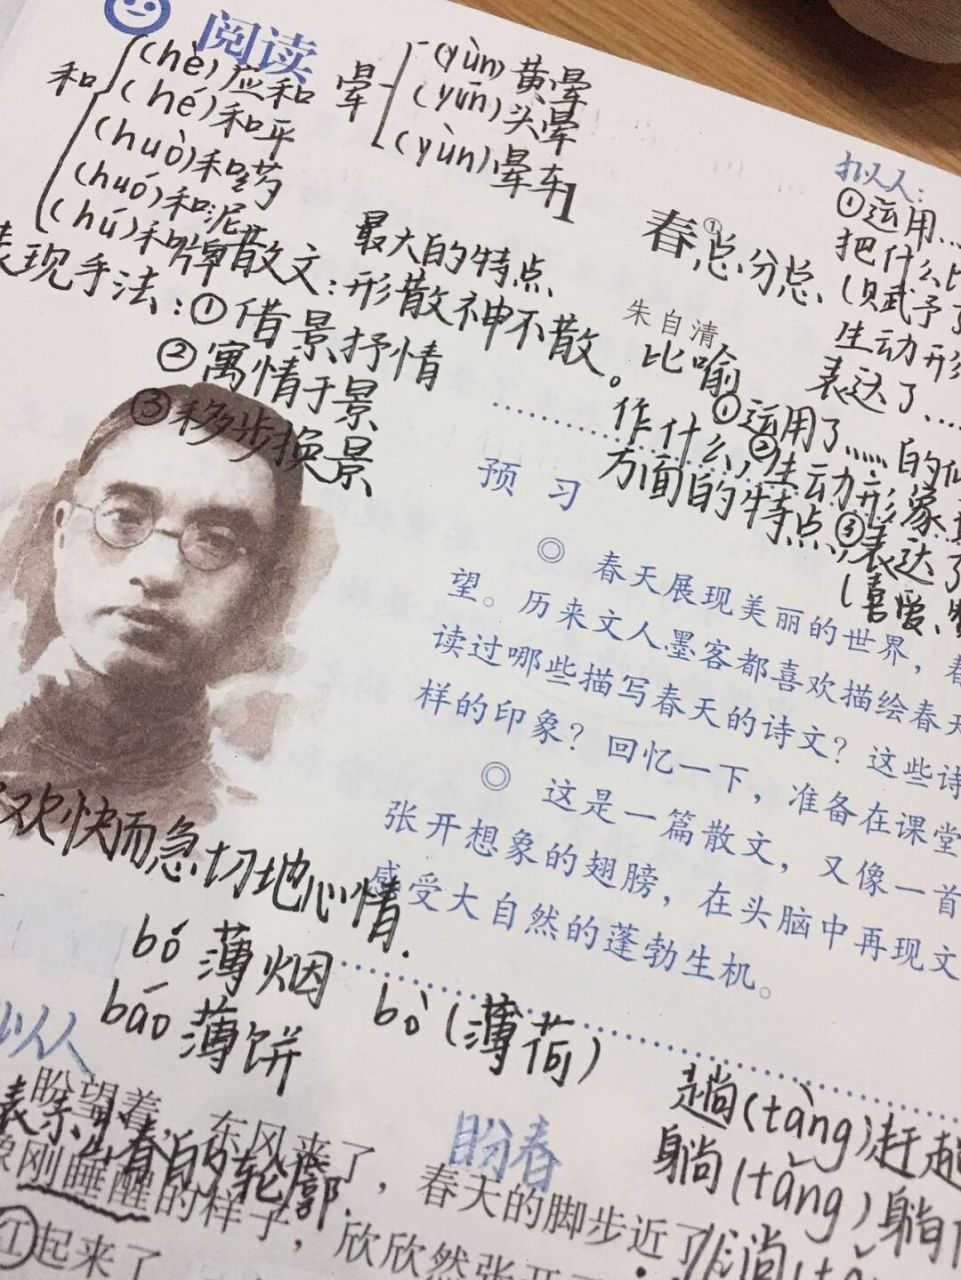 阅读
和
(hè)应和
(hé)和平
(huò)和药
(huó)和泥
(hú)和牌
晕
(yùn)黄晕
(yūn)头晕
(yùn)晕车
散文:
最大的特点
形散神不散。
表现手法:①借景抒情
②寓情于景
③移步换景
1
春①
总分总
朱自清
拟人:
①运用…
把什么
(赋予了
生动形
表达了…
比喻
①运用了……的
作什么,②生动形象
方面的特点,③表达了
(喜爱、
预习
◎ 春天展现美丽的世界,春
望。历来文人墨客都喜欢描绘春天
读过哪些描写春天的诗文?这些诗
样的印象?回忆一下,准备在课堂
◎ 这是一篇散文,又像一首
张开想象的翅膀,在头脑中再现文
感受大自然的蓬勃生机。
欢快而急切地心情.
bó 薄烟
báo 薄饼
bò(薄荷)
拟人
盼望着,东风来了,春天的脚步近了
盼春
表示出春的轮廓.
像刚睡醒的样子,欣欣然张开
①起来了
趟(tàng)赶趟
躺(tǎng)躺
淌(tǎ